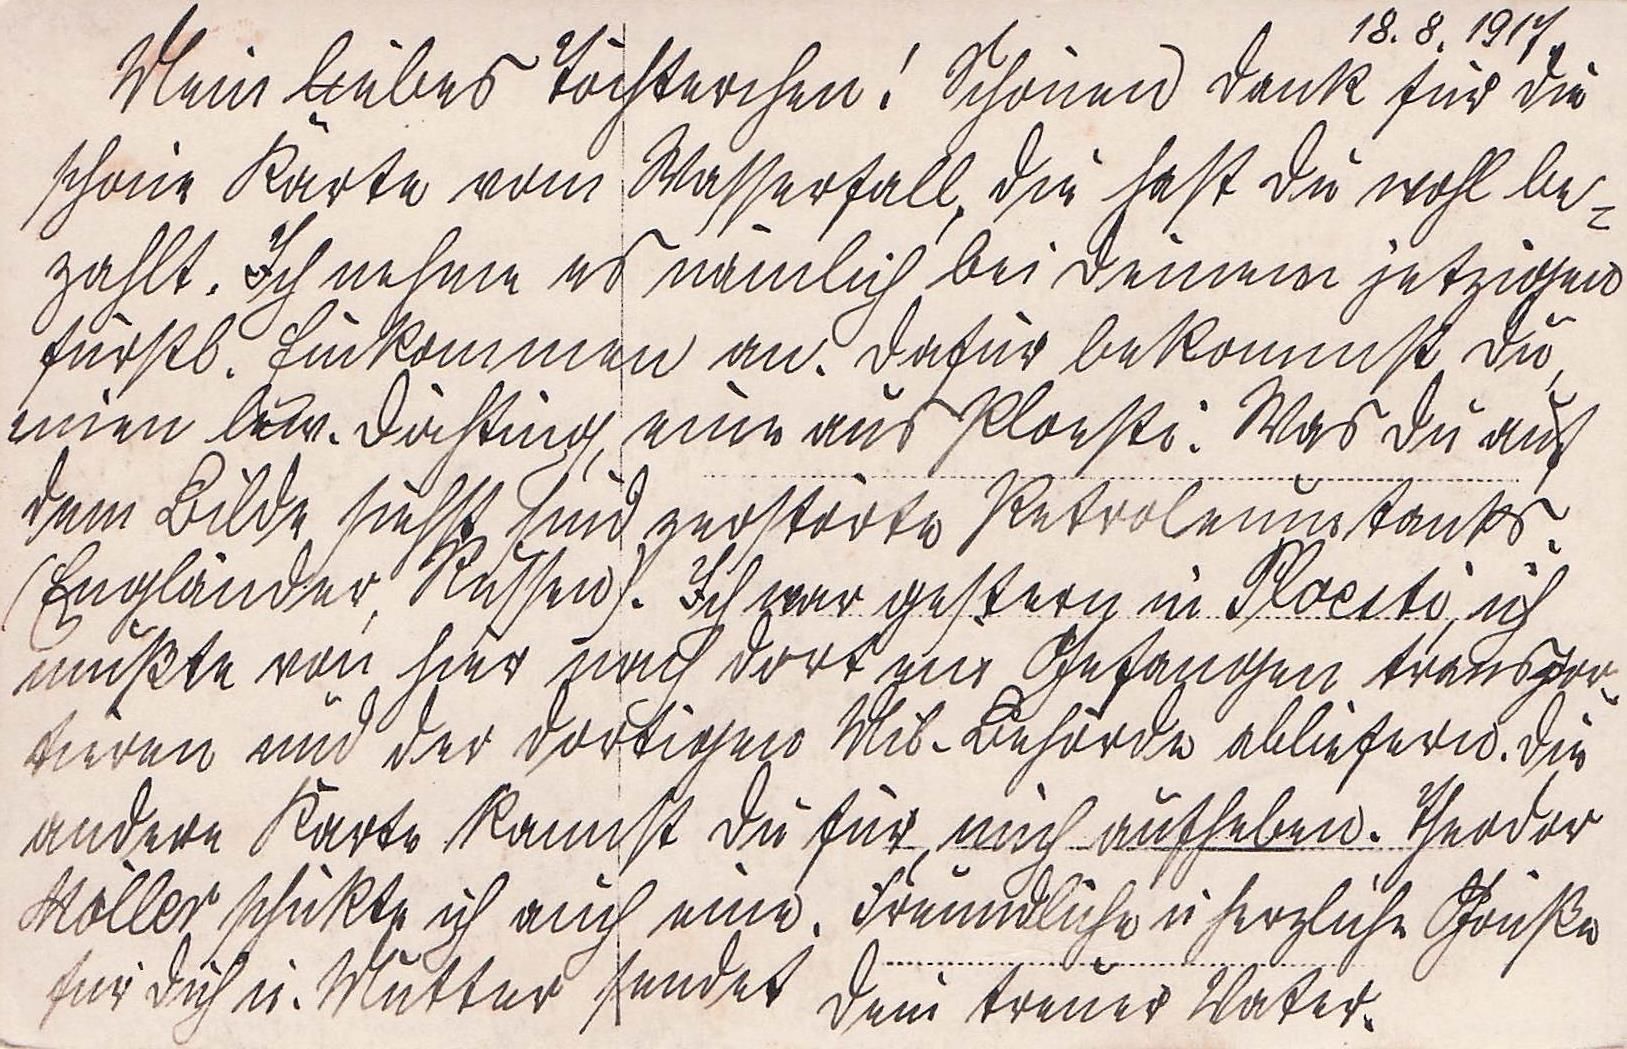 18. 8. 1917.
Mein liebes Töchterchen! Schönen Dank für die
schöne Karte vom Wasserfall, die hast Du wohl be-
zahlt. Ich nehme es nämlich bei Deinem jetzigen
fürstl. Einkommen an. Dafür bekommst Du,
meine Dochting, eine aus Ploesti. Was Du auf
dem Bilde siehst sind zerstörte Petroleumtanks.
(Engländer, Russen). Ich war gestern in Ploesti, ich
mußte von hier nach dort Gefangen transpor-
tieren und der dortigen Mil.-Behörde abliefern. Die
andere Karte kannst Du für mich aufheben. Theodor
Möller schickte ich auch eine. Freundliche u herzliche Grüße
für Dich u. Mutter sendet Dein treuer Vater.